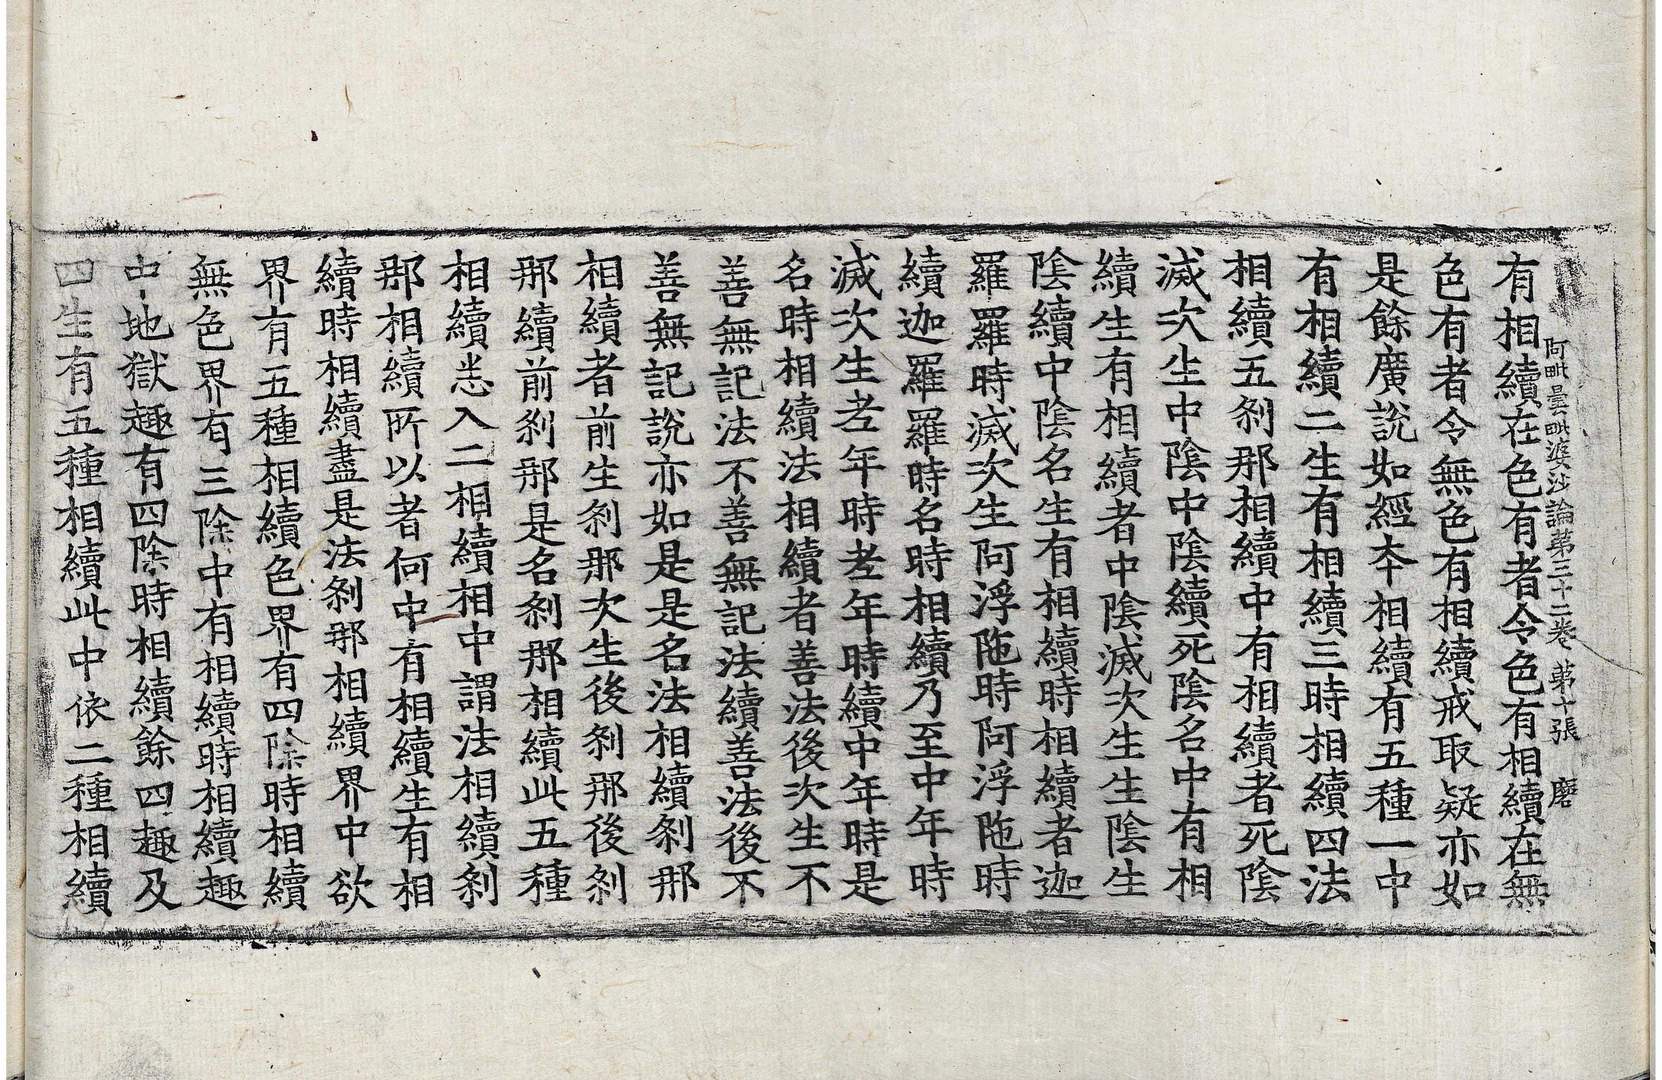 阿毗曇毗婆沙論第三十二卷 第十張 磨
有相續在色有者令色有相續在無
色有者令無色有相續戒取疑亦如
是餘廣說如經本相續有五種一中
有相續二生有相續三時相續四法
相續五刹那相續中有相續者死陰
滅次生中陰中陰續死陰名中有相
續生有相續者中陰滅次生生陰生
陰續中陰名生有相續時相續者迦
羅羅時滅次生阿浮陁時阿浮陁時
續迦羅羅時名時相續乃至中年時
滅次生老年時老年時續中年時是
名時相續法相續者善法後次生不
善無記法不善無記法續善法後不
善無記說亦如是是名法相續刹那
相續者前生刹那次生後刹那後刹
那續前刹那是名刹那相續此五種
相續悉入二相續相中謂法相續刹
那相續所以者何中有相續生有相
續時相續盡是法刹那相續界中欲
界有五種相續色界有四除時相續
無色界有三除中有相續時相續趣
中地獄趣有四除時相續餘四趣及
四生有五種相續此中依二種相續